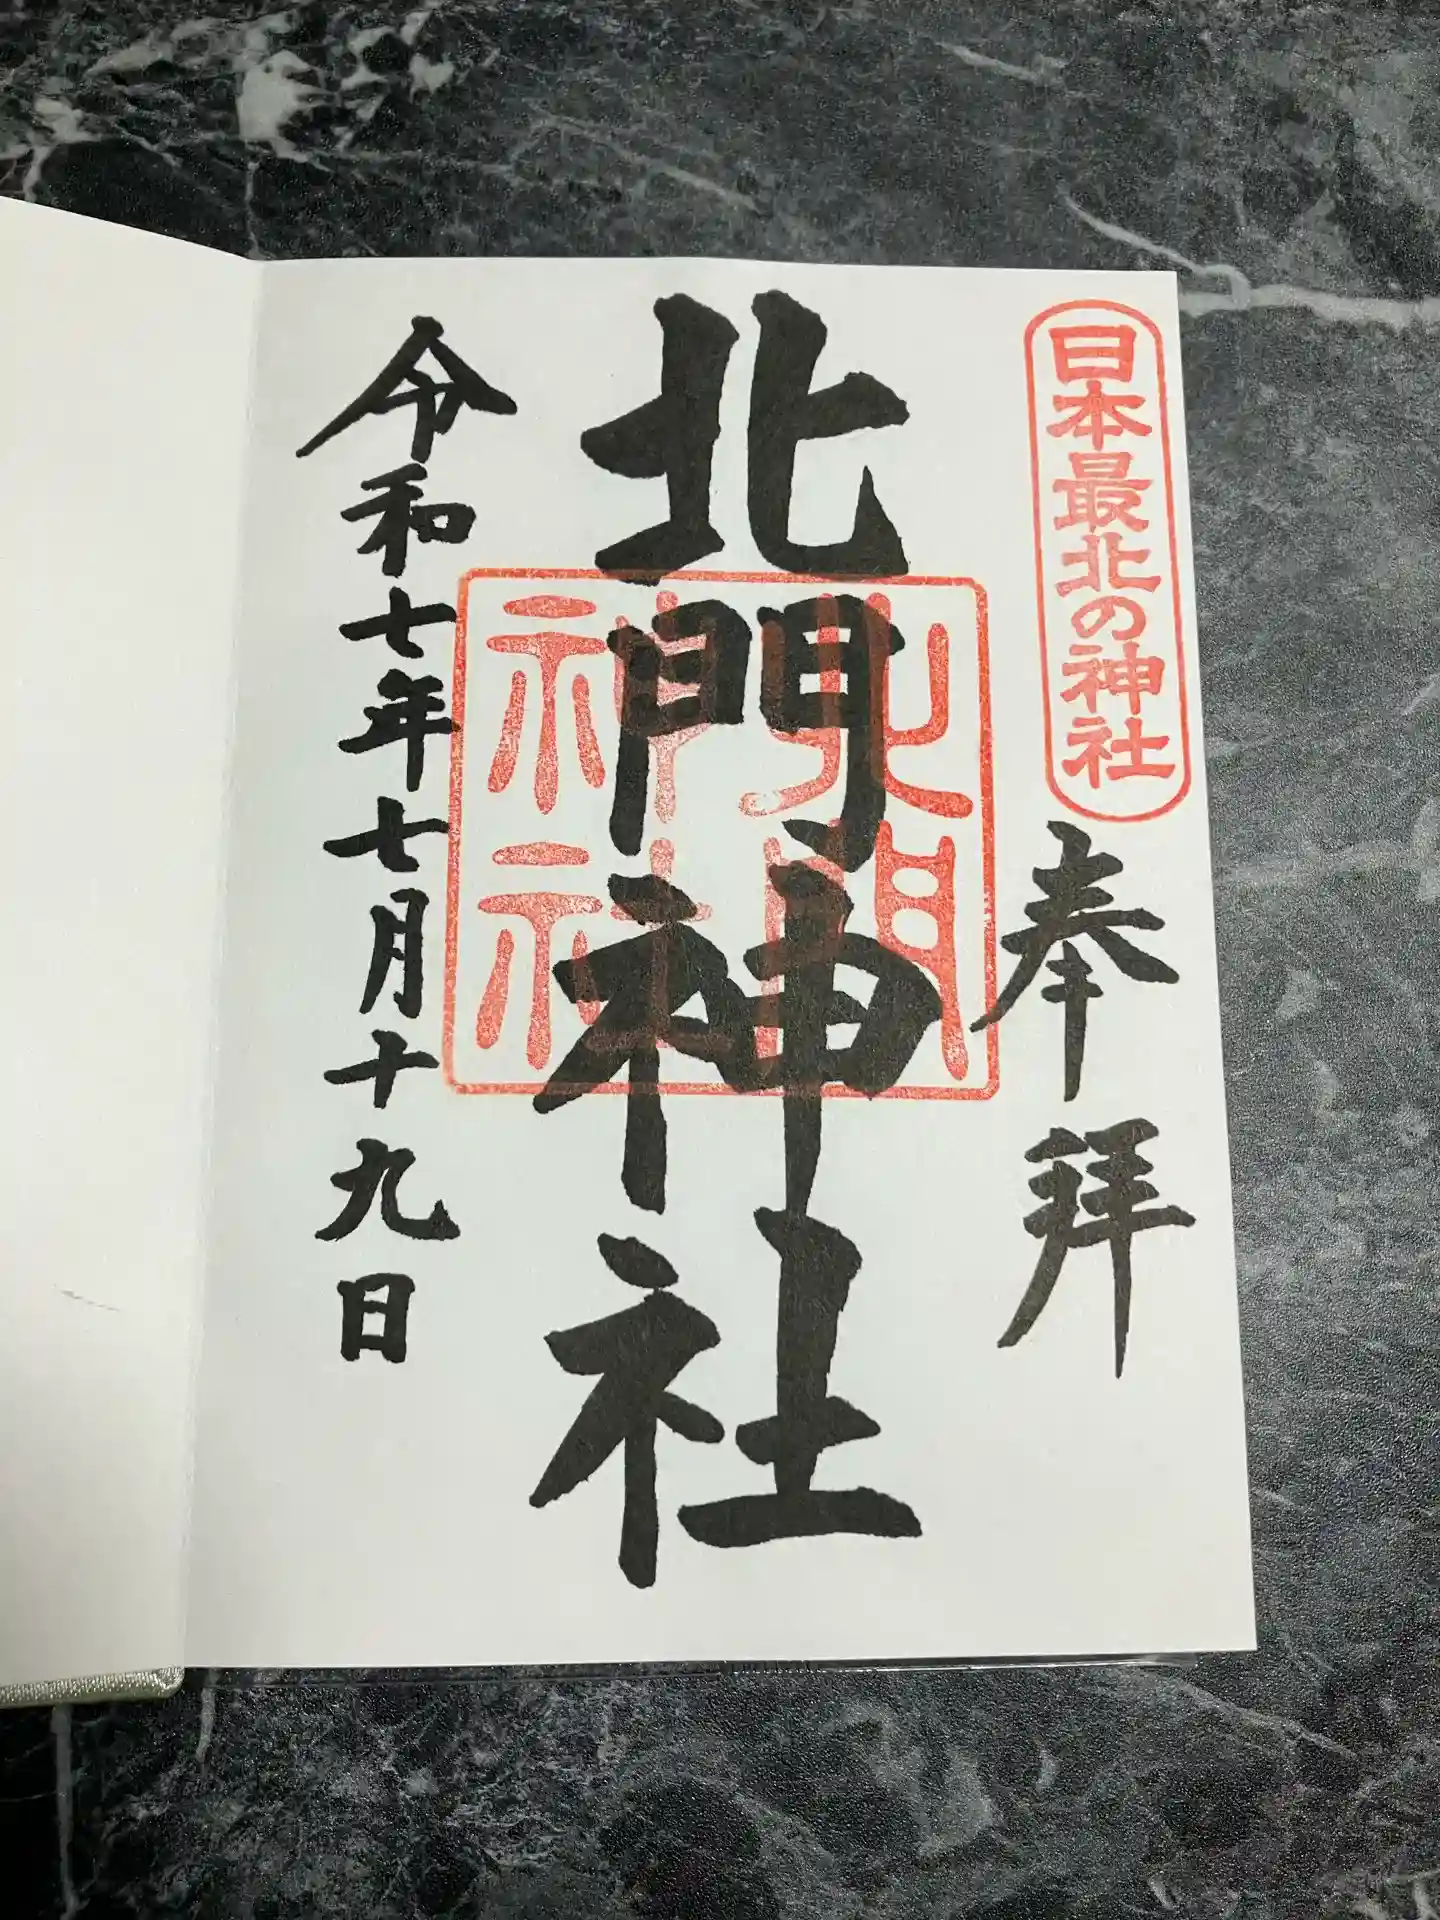 日本最北の神社
奉拝
北門神社
北門
神社
令和七年七月十九日